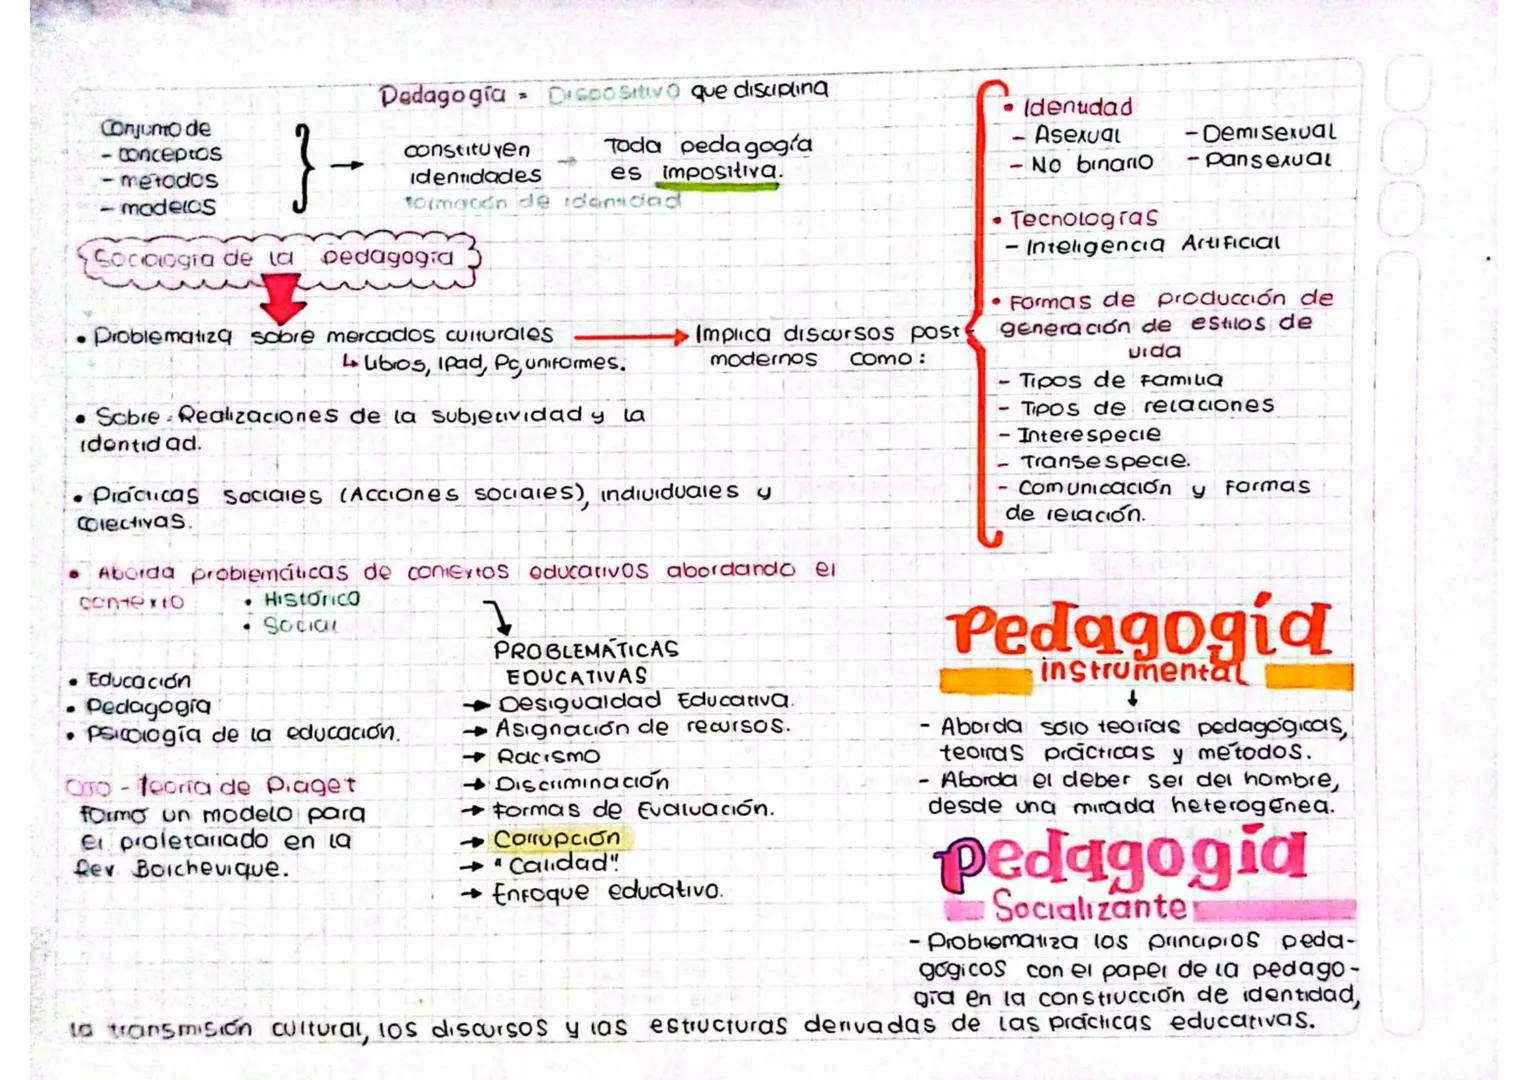 Pedagogía = Dispositivo que disciplina
Conjunto de
- conceptos
- métodos
- modelos
constituyen
identidades
formación de identidad
Toda pedagogía
es impositiva.
Sociología de la pedagogía
• Problematiza sobre mercados culturales
↳ Libros, IPad, Pc, uniformes.
Implica discursos post
modernos como:
• Identidad
- Asexual - Demisexual
- No binario - Pansexual
• Tecnologías
- Inteligencia Artificial
• Formas de producción de
generación de estilos de
vida
- Tipos de familia
- Tipos de relaciones
- Interespecie
- Transespecie.
- Comunicación y formas
de relación.
• Sobre: Realizaciones de la subjetividad y la
identidad.
• Prácticas sociales (Acciones sociales), individuales y
colectivas.
• Aborda problemáticas de contextos educativos abordando el
contexto • Histórico
• Social
• Educación
• Pedagogía
• Psicología de la educación.
- Teoría de Piaget
formó un modelo para
el proletariado en la
Rev Bolchevique.
PROBLEMÁTICAS
EDUCATIVAS
→ Desigualdad Educativa.
→ Asignación de recursos.
→ Racismo
→ Discriminación
→ Formas de Evaluación.
→ Corrupción
→ "Calidad"
→ Enfoque educativo.
Pedagogía
instrumental
- Aborda sólo teorías pedagógicas,
teorías prácticas y métodos.
- Aborda el deber ser del hombre,
desde una mirada heterogénea.
pedagogía
Socializante
- Problematiza los principios peda-
gógicos con el papel de la pedago-
gía en la construcción de identidad,
la transmisión cultural, los discursos y las estructuras derivadas de las prácticas educativas.